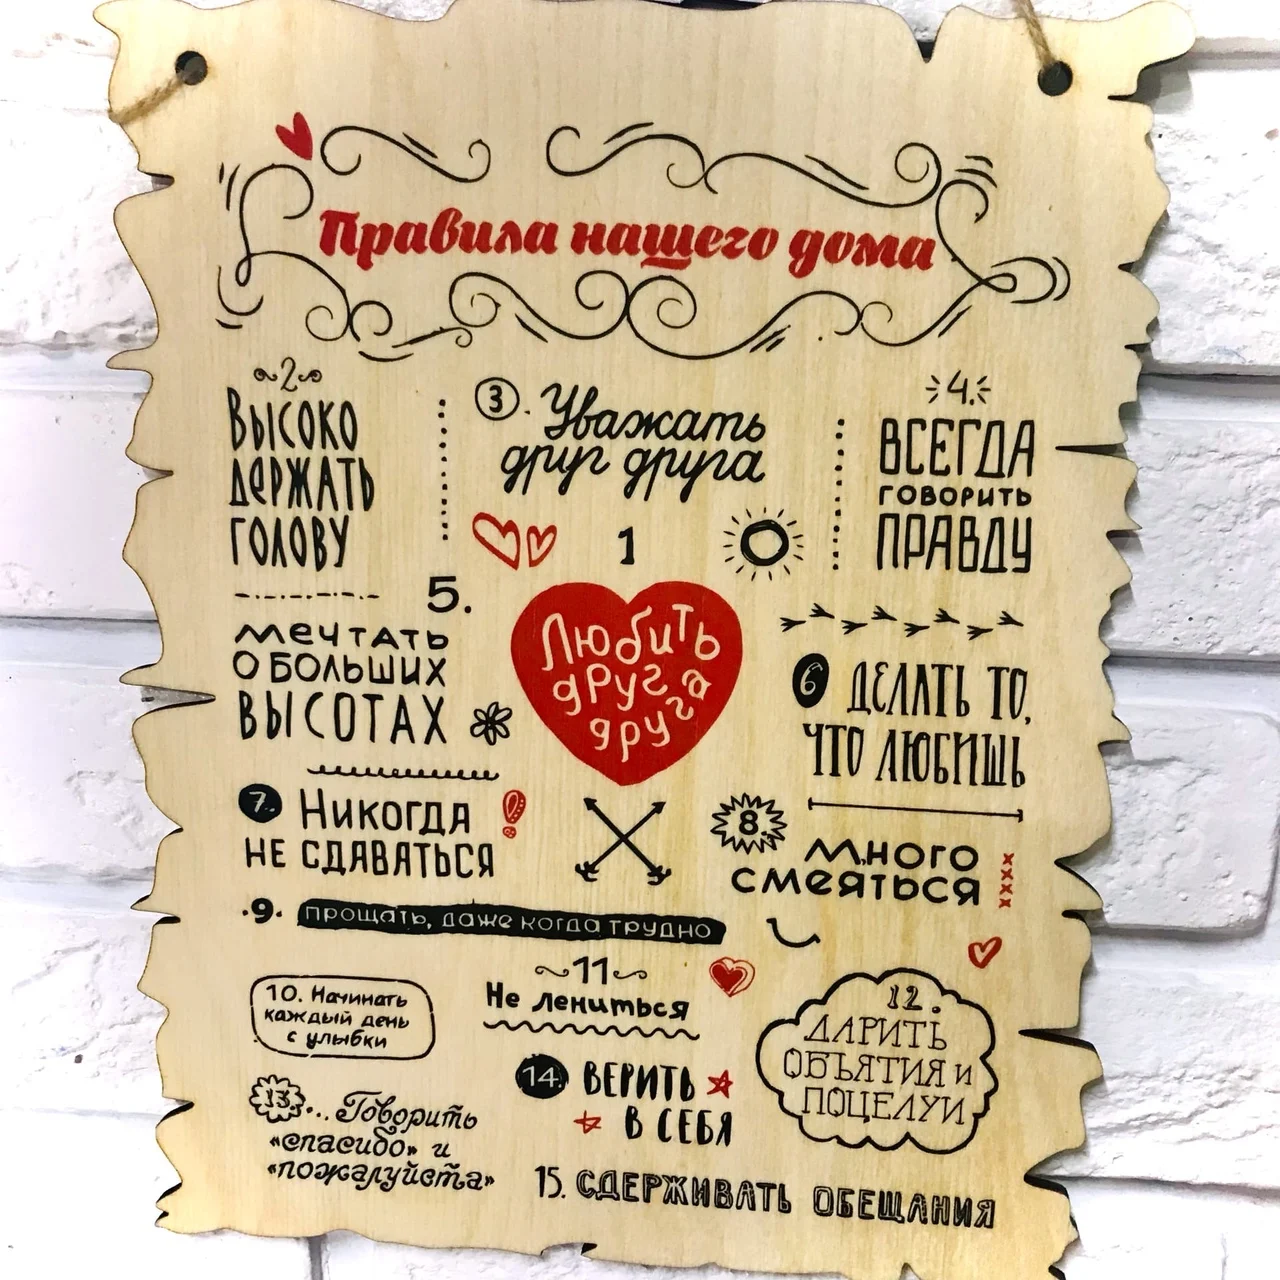 Правила нашего дома
2
ВЫСОКО
ДЕРЖАТЬ
ГОЛОВУ
3. Уважать
друг друга
4.
ВСЕГДА
ГОВОРИТЬ
ПРАВДУ
1
Любить
друг
друга
5.
МЕЧТАТЬ
О БОЛЬШИХ
ВЫСОТАХ
6 ДЕЛАТЬ ТО,
ЧТО ЛЮБИШЬ
7. НИКОГДА
НЕ СДАВАТЬСЯ
8.
МНОГО
СМЕЯТЬСЯ
·9· ПРОЩАТЬ, ДАЖЕ КОГДА ТРУДНО
10. Начинать
каждый день
с улыбки
11
Не лениться
12.
ДАРИТЬ
ОБЪЯТИЯ И
ПОЦЕЛУИ
13... Говорить
«спасибо» и
«пожалуйста»
14. ВЕРИТЬ
В СЕБЯ
15. СДЕРЖИВАТЬ ОБЕЩАНИЯ